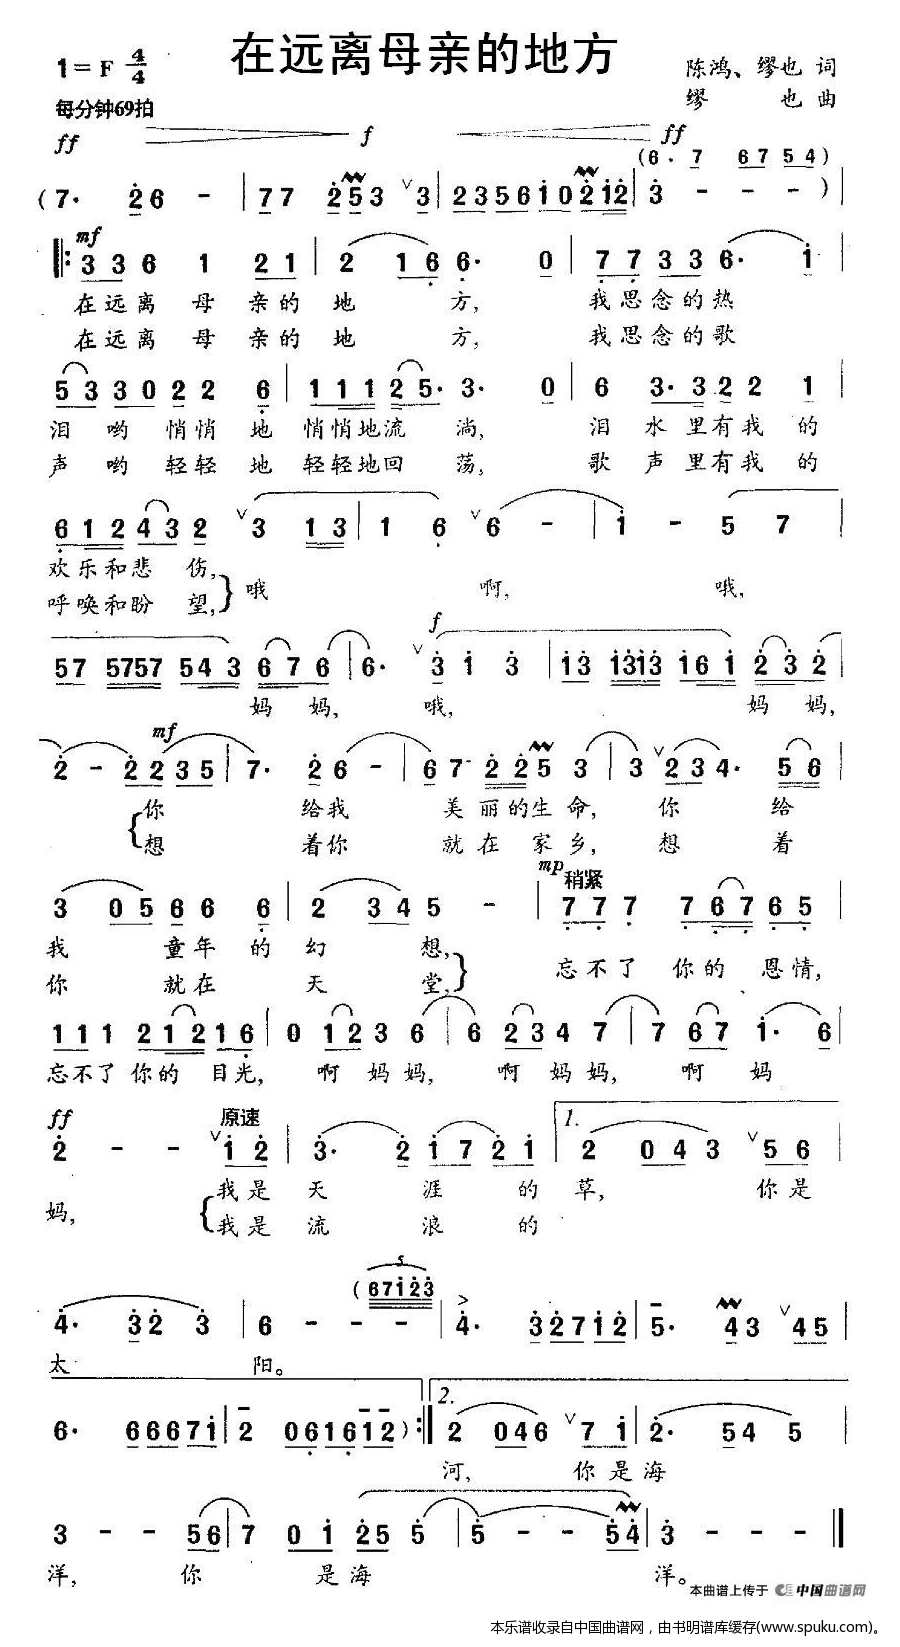 在远离母亲的地方
1=F 4/4
陈鸿、缪也 词
每分钟69拍
缪 也 曲
ff f ff
(6· 7 67 54)
(7· 26 - | 77 253 ∨ 3 | 235610212 | 3 - - - )
mf
336 1 21 | 2 16 6· 0 | 77 33 6· 1 |
在远离 母 亲的 地 方, 我思念的热
在远离 母 亲的 地 方, 我思念的歌
53 30 22 6 | 111 25· 3· 0 | 6 3·3 22 1 |
泪 哟 悄悄 地 悄悄地流 淌, 泪 水 里有我 的
声 哟 轻轻 地 轻轻地回 荡, 歌 声 里有我 的
612 43 2 ∨ 3 13 | 1 6 ∨ 6 - | 1 - 5 7
欢乐和悲 伤,
哦 啊, 哦,
呼唤和盼 望,
f
57 5757 543 676 | 6· ∨ 3 1 3 | 13 1313 161 232 |
妈 妈, 哦, 妈 妈,
mf
2 - 2235 | 7· 26 - | 67 2253 | 3 ∨ 234· 56 |
你 给我 美 丽的生 命, 你 给
想 着你 就 在 家 乡, 想 着
mp 稍紧
3 05 66 6 | 2 345 - | 777 767 65 |
我 童年 的 幻 想,
忘不了 你的 恩情,
你 就在 天 堂,
111 212 16 | 0 123 6 | 6 234 7 | 7 67 1· 6 |
忘不了 你的 目光, 啊 妈妈, 啊 妈妈, 啊 妈
ff 原速 1.
2 - - ∨ 12 | 3· 2 17 21 | 2 043 ∨ 56 |
我是 天 涯 的 草, 你是
妈,
我是 流 浪 的
5
(67123
4· 32 3 | 6 - - - | 4· 32712 | 5· 43 ∨ 45 |
太 阳。
2.
6· 66671 | 2 061612 ) :| 2 046 ∨ 71 | 2· 54 5 |
河, 你是海
3 - - 56 | 7 01 25 5 | 5 - - 54 | 3 - - - ||
洋, 你 是海 洋。
本曲谱上传于 中国曲谱网
本乐谱收录自中国曲谱网，由书明谱库缓存(www.spuku.com)。